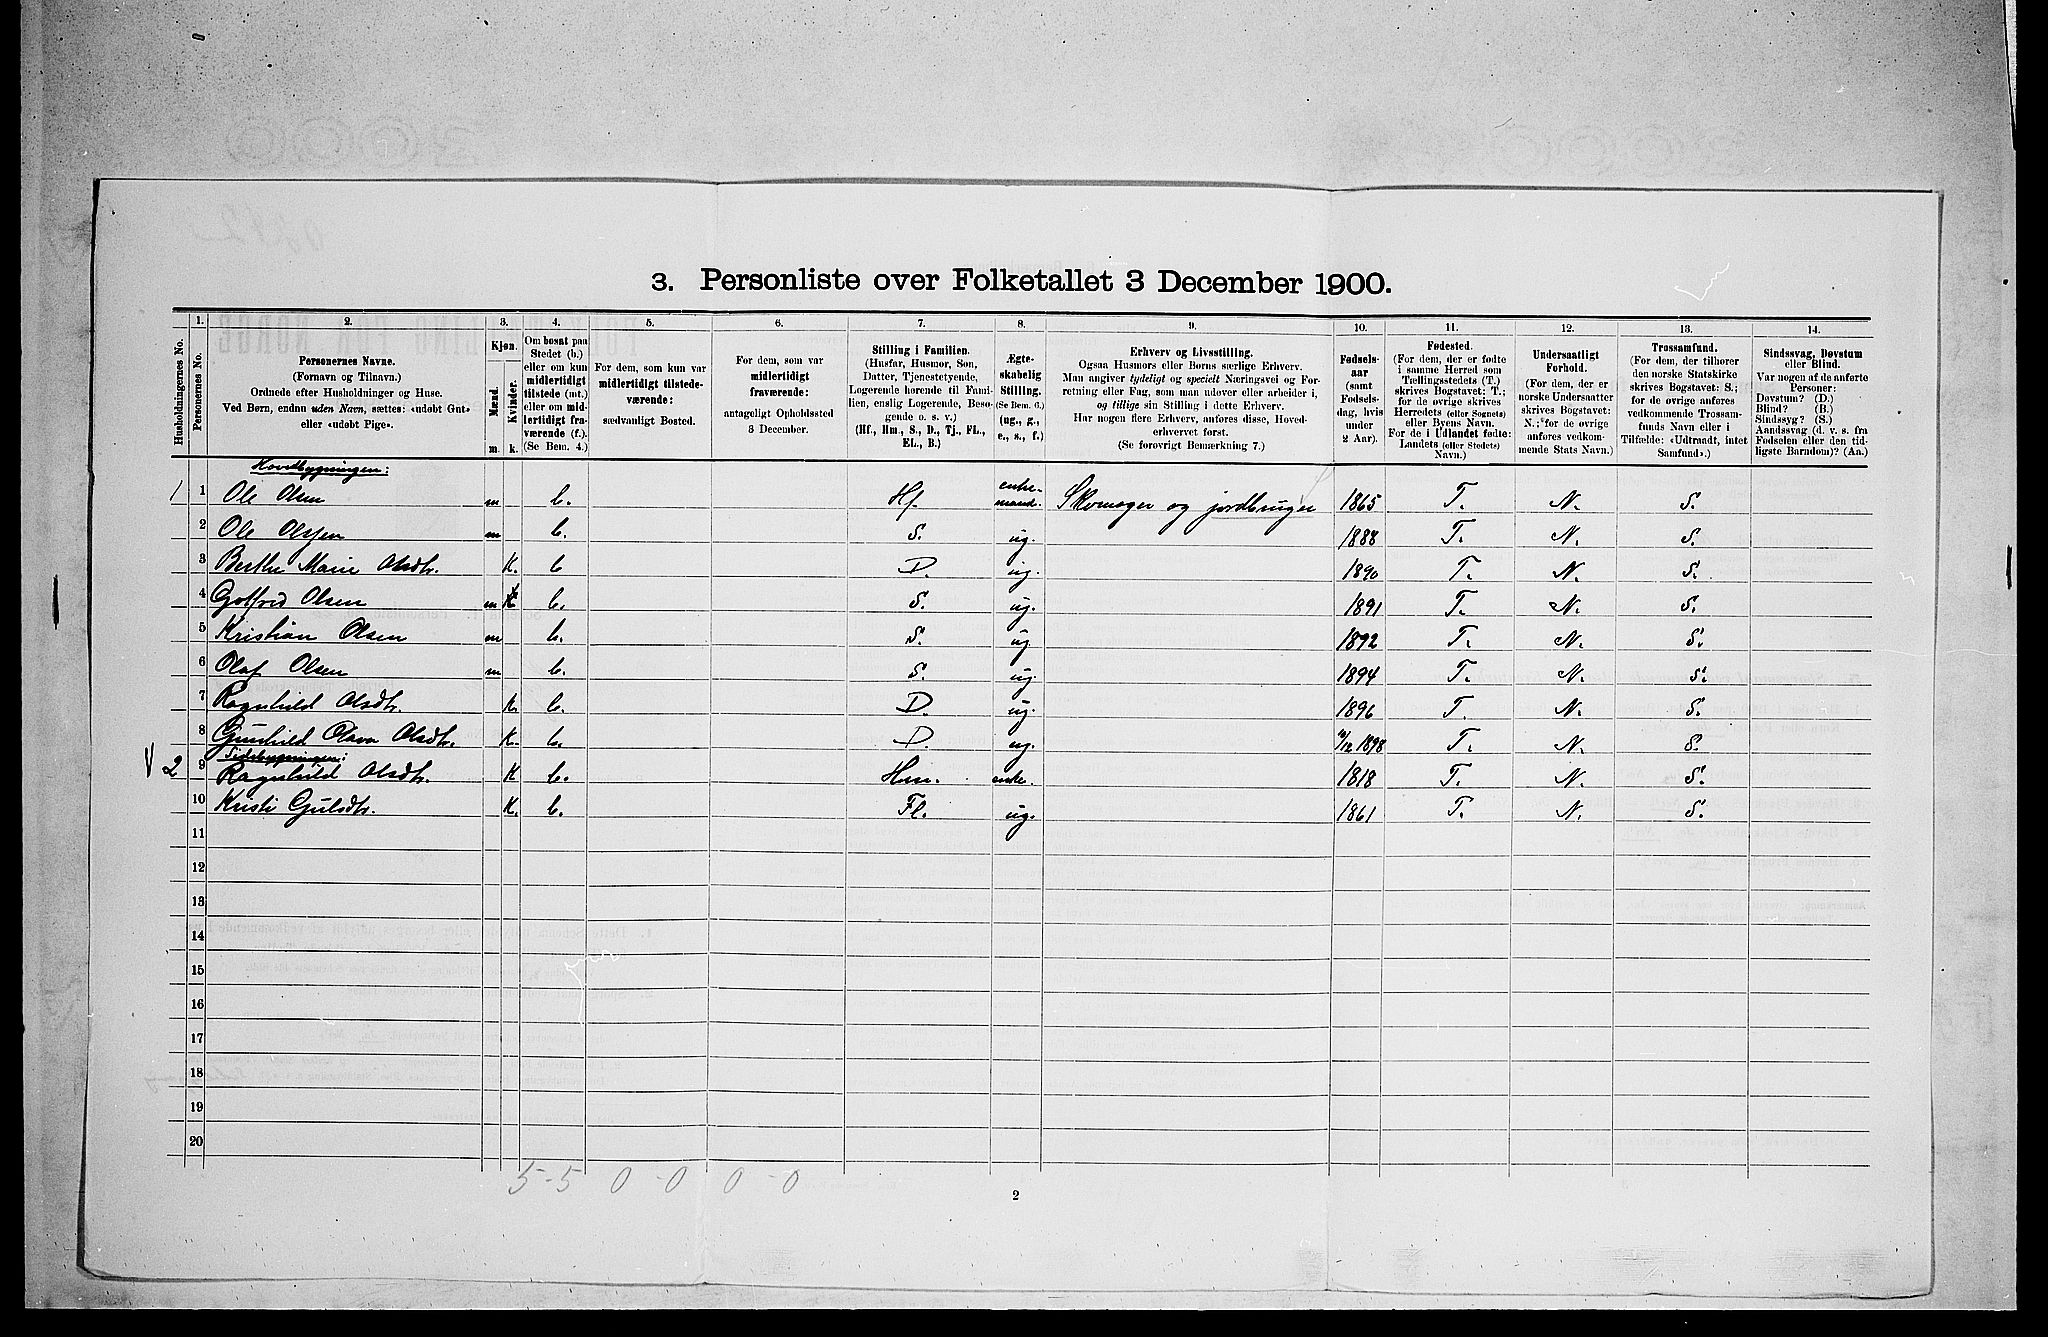 3. Personliste over Folketallet 3 December 1900.
1. 2. 3. 4. 5. 6. 7. 8. 9. 10. 11. 12. 13. 14.
Husholdningernes No.
Personernes No.
Personernes Navne.
(Fornavn og Tilnavn.)
Ordnede efter Husholdninger og Huse.
Ved Børn, endnu uden Navn, sættes: «udøbt Gut»
eller «udøbt Pige».
Kjøn.
Mænd.
Kvinder.
m. k.
Om bosat paa
Stedet (b.)
eller om kun
midlertidigt
tilstede (mt.)
eller om mid-
lertidigt fra-
værende (f.).
(Se Bem. 4.)
For dem, som kun var
midlertidigt tilstede-
værende:
sædvanligt Bosted.
For dem, som var
midlertidigt
fraværende:
antageligt Opholdssted
3 December.
Stilling i Familien.
(Husfar, Husmor, Søn,
Datter, Tjenestetyende,
Logerende hørende til Fami-
lien, enslig Logerende, Besø-
gende o. s. v.)
(Hf., Hm., S., D., Tj., FL.,
EL., B.)
Ægte-
skabelig
Stilling.
(Se Bem. 6.)
(ug., g.,
e., s., f.)
Erhverv og Livsstilling.
Ogsaa Husmors eller Børns særlige Erhverv.
Man angiver tydeligt og specielt Næringsvei og For-
retning eller Fag, som man udøver eller arbeider i,
og tillige sin Stilling i dette Erhverv.
Har nogen flere Erhverv, anføres disse, Hoved-
erhvervet først.
(Se forøvrigt Bemærkning 7.)
Fødsels-
aar
(samt
Fødsels-
dag, hvis
under
2 Aar).
Fødested.
(For dem, der er fødte
i samme Herred som
Tællingsstedets (T.)
skrives Bogstavet: T.;
for de øvrige skrives
Herredets (eller Sognets)
eller Byens Navn.
For de i Udlandet fødte:
Landets (eller Stedets)
Navn.)
Undersaatligt
Forhold.
(For dem, der er
norske Undersaatter
skrives Bogstavet:
N.; for de øvrige
anføres vedkom-
mende Stats Navn.)
Trossamfund.
(For dem, der tilhører
den norske Statskirke
skrives Bogstavet: S.;
for de øvrige anføres
vedkommende Trossam-
funds Navn eller i
Tilfælde: «Udtraadt, intet
Samfund».)
Sindssvag, Døvstum
eller Blind.
Var nogen af de anførte
Personer:
Døvstum? (D.)
Blind? (B.)
Sindssyg? (S.)
Aandssvag (d. v. s. fra
Fødselen eller den tid-
ligste Barndom)? (Aa.)
Hovedbygningen:
1 1 Ole Olsen m b. Hf. enke-mand. Skomager og jordbruger 1865 T. N. S.
2 Ole Olsen m b. S. ug. 1888 T. N. S.
3 Berthe Marie Olsdtr. K. b D. ug. 1890 T. N. S.
4 Gotfred Olsen m b. S. ug. 1891 T. N. S.
5 Kristian Olsen m b. S. ug 1892 T. N. S.
6 Olaf Olsen m b. S. ug. 1894 T. N. S.
7 Ragnhild Olsdtr. K. b. D. ug. 1896 T. N. S.
8 Gunhild Olava Olsdtr. K. b. D. ug. /12 1898 T. N. S.
Sidebygningen:
V 2 9 Ragnhild Olsdtr. K b. Hm. enke. 1818 T. N. S.
10 Kristi Gulsdtr. K. b. Fl. ug. 1861 T. N. S.
11
12
13
14
15
16
17
18
19
20
5-5 0-0 0-0
2